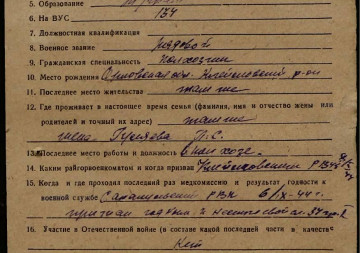 5. Образование
6. На ВУС 134
7. Должностная квалификация
8. Военное звание рядовой
9. Гражданская специальность колхозник
10. Место рождения р-он
11. Последнее место жительства там же
12. Где проживает в настоящее время семья (фамилия, имя и отчество жены или
родителей и точный их адрес) там же
жена П. С.
13. Последнее место работы и должность в колхозе.
14. Каким райгорвоенкоматом и когда призван РВК
15. Когда и где проходил последний раз медкомиссию и результат годности к
военной службе РВК 6/IX-44г.
признан годным к
16. Участие в Отечественной войне (в составе какой последней части и в качестве
Нет